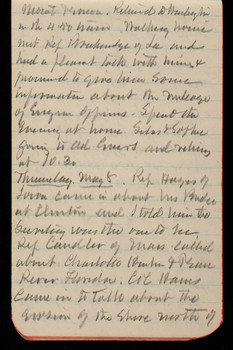 Mount Vernon. Returned to Washington
in the 4.50 train. Walking home
met Rep Breckenridge of
and
had a pleasant talk with mine &
promised to give him some
information about the mileage
of Engineer Officers. Spent the
Evening at home. Silas & Sophie
going to and retiring
at 10.30
Thursday, May 8. Rep Hayes of
Iowa came in about his Bridge
at Clinton and I told him the
Secretary was the one to see,
Rep Candler of Mass called
about Charlotte Harbor & Pease
River Florida. Col Hains
came in to talk about the
erosion of the shore north of